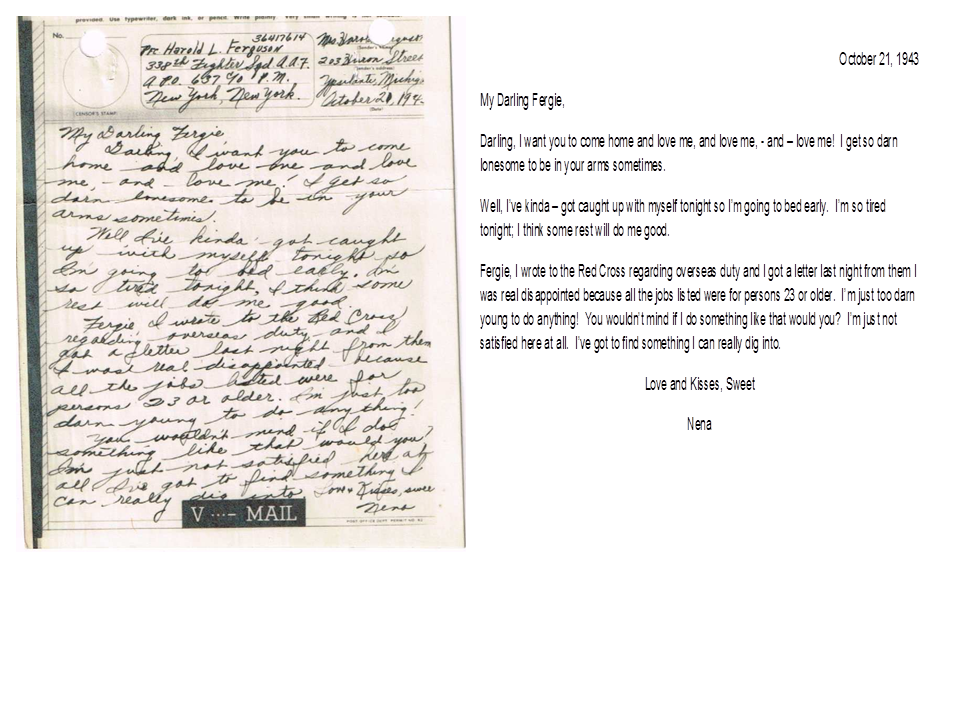 provided. Use typewriter, dark ink, or pencil. Write plainly. Very small writing is
No.
CENSOR'S STAMP
36417614
Pvt. Harold L. Ferguson
338th Fighter Sqd A.A.F.
A.P.O. 637 c/o P.M.
New York, New York.
Mrs Harold
(Sender's name)
203 Huron Street
(Sender's address)
Ypsilanti, Michig
October 21, 194
(Date)
My Darling Fergie
Darling, I want you to come
home and love me and love
me, - and - love me! I get so
darn lonesome to be in your
arms sometimes.
Well I've kinda - got caught
up with myself tonight so
I'm going to bed early. I'm
so tired tonight, I think some
rest will do me good.
Fergie, I wrote to the Red Cross
regarding overseas duty and I
got a letter last night from them
I was real disappointed because
all the jobs listed were for
persons 23 or older. I'm just too
darn young to do anything!
You wouldn't mind if I do
something like that would you?
I'm just not satisfied here at
all I've got to find something I
can really dig into
Love & Kisses, sweet
Nena
V ···– MAIL
POST OFFICE DEPT. PERMIT NO.
October 21, 1943
My Darling Fergie,
Darling, I want you to come home and love me, and love me, - and – love me! I get so darn
lonesome to be in your arms sometimes.
Well, I've kinda – got caught up with myself tonight so I'm going to bed early. I'm so tired
tonight; I think some rest will do me good.
Fergie, I wrote to the Red Cross regarding overseas duty and I got a letter last night from them I
was real disappointed because all the jobs listed were for persons 23 or older. I'm just too darn
young to do anything! You wouldn't mind if I do something like that would you? I'm just not
satisfied here at all. I've got to find something I can really dig into.
Love and Kisses, Sweet
Nena